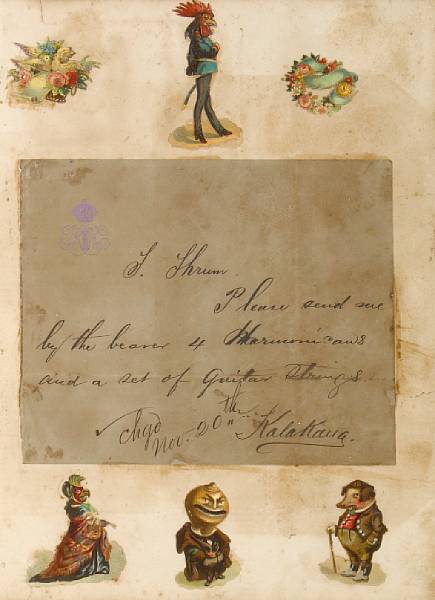 T. Thrum.
Please send me
by the bearer 4 Harmonicans
and a set of Guitar Strings
chgd
Nov. 20th Kalakaua.